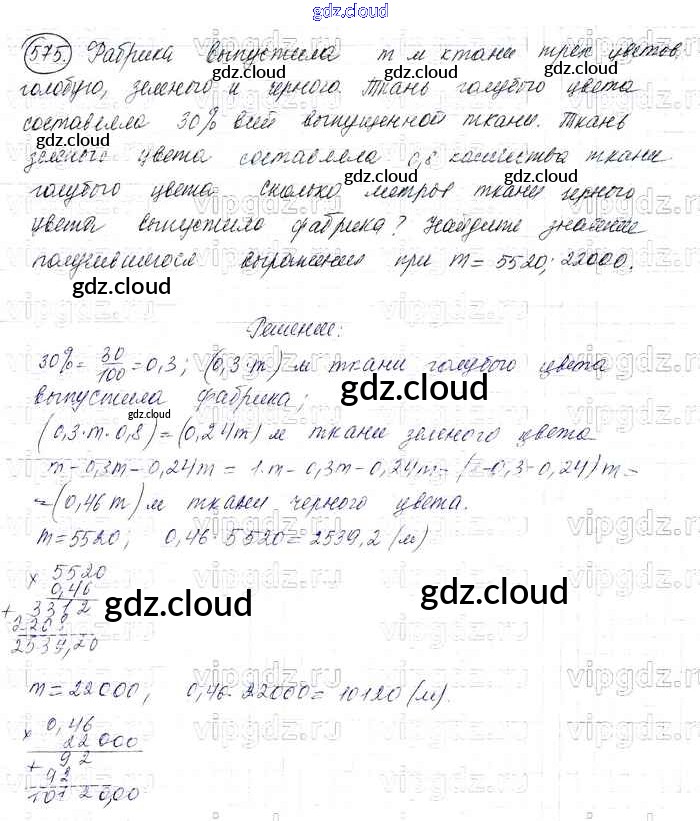 gdz.cloud
575. Фабрика выпустила m м ткани трех цветов
голубую, зеленого и черного. Ткань голубого цвета
составляла 30% всей выпущенной ткани. Ткань
зеленого цвета составляла 0,8 количества ткани
голубого цвета. Сколько метров ткани черного
цвета выпустила фабрика? Найдите значение
получившегося выражения при m = 5520; 22000.
Решение:
30% = 30/100 = 0,3; (0,3·m) м ткани голубого цвета
выпустила фабрика;
(0,3·m·0,8) = (0,24m) м ткани зеленого цвета
m - 0,3m - 0,24m = 1·m - 0,3m - 0,24m = (1-0,3-0,24)m =
= (0,46m) м ткани черного цвета.
m = 5520; 0,46·5520 = 2539,2 (м)
× 5520
0,46
+ 3312
2208
2539,20
m = 22000, 0,46·22000 = 10120 (м).
× 0,46
22000
+ 92
92
10120,00
gdz.cloud
gdz.cloud
gdz.cloud
gdz.cloud
gdz.cloud
gdz.cloud
gdz.cloud
gdz.cloud
gdz.cloud
gdz.cloud
gdz.cloud
gdz.cloud
vipgdz.ru